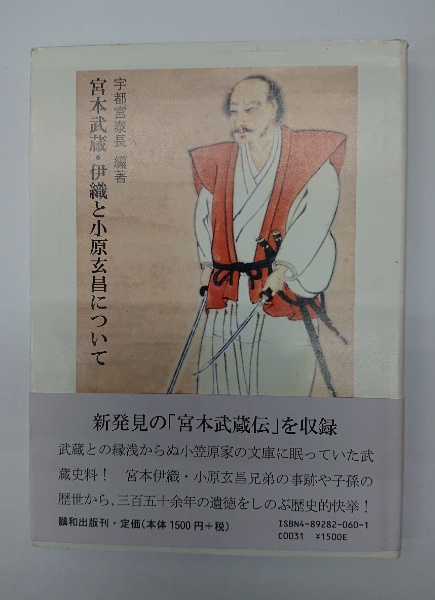 宇都宮泰長 編著
宮本武蔵・伊織と小原玄昌について
新発見の「宮本武蔵伝」を収録
武蔵との縁浅からぬ小笠原家の文庫に眠っていた武
蔵史料！ 宮本伊織・小原玄昌兄弟の事跡や子孫の
歴世から、三百五十余年の遺徳をしのぶ歴史的快挙！
鵬和出版刊・定価(本体 1500円+税)
ISBN4-89282-060-1
C0031 ¥1500E